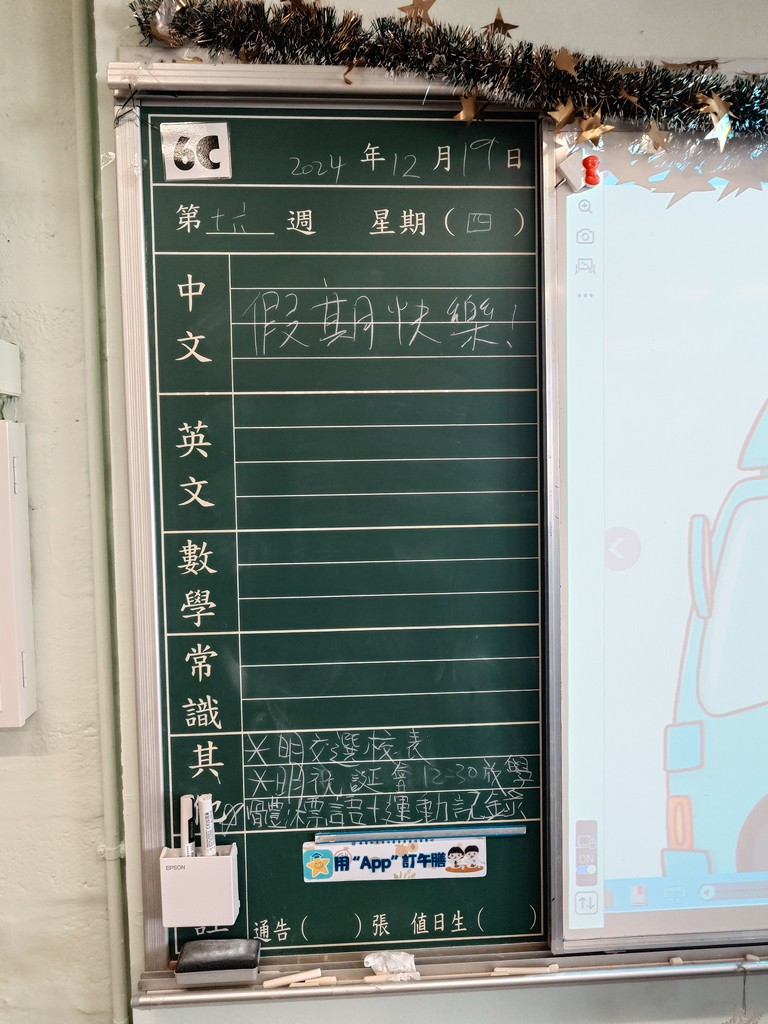 6C
2024 年 12 月 19 日
第 十六 週 星期 ( 四 )
中文
假期快樂!
英文
數學
常識
其
※明交選校表
※明祝誕會 12-30放學
體:標語+運動記錄
EPSON
用“App”訂午膳
註
通告 ( ) 張 值日生 ( )
ON